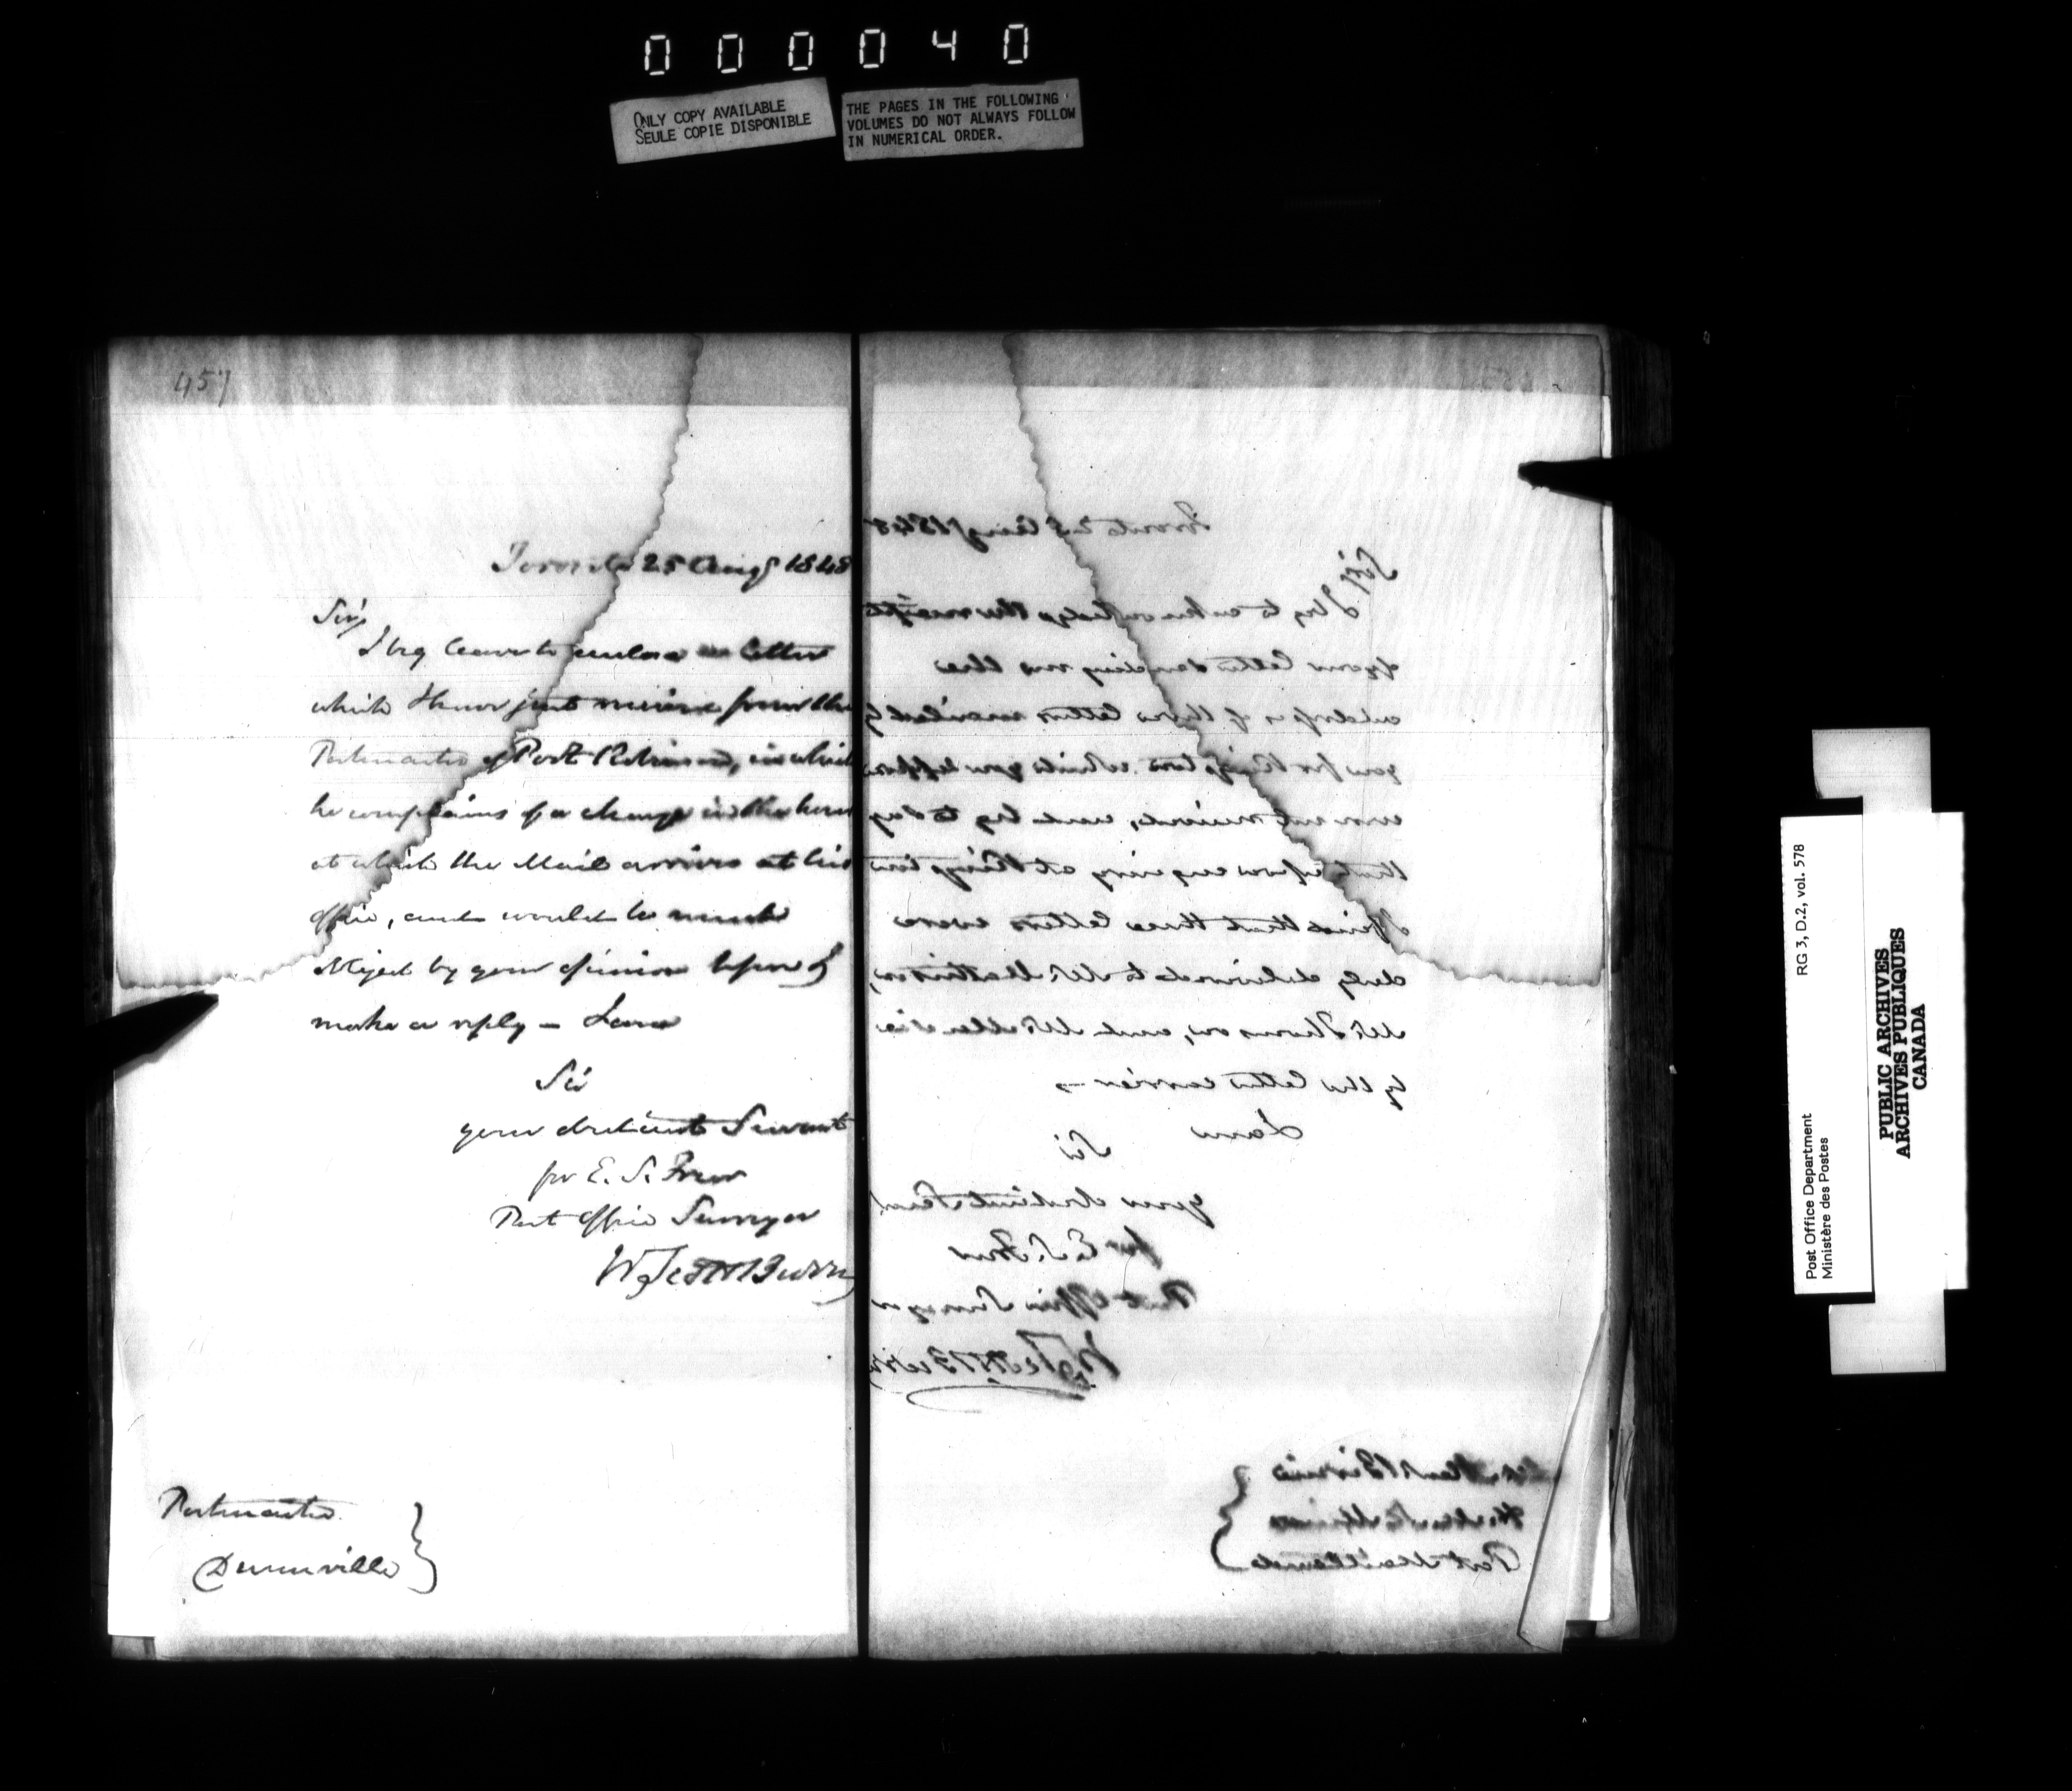 000040
ONLY COPY AVAILABLE
SEULE COPIE DISPONIBLE
THE PAGES IN THE FOLLOWING
VOLUMES DO NOT ALWAYS FOLLOW
IN NUMERICAL ORDER.
457
Toronto 25 Augt 1848
Sir,
I beg leave to enclose a letter
which I have just received from the
Postmaster of Port Robinson, in which
he complains of a change in the hour
at which the Mail arrives at his
office, and would be much
obliged by your opinion before I
make a reply - I am
Sir
your obedient Servant
for E. S. Freer
Post Office Surveyor
Postmaster
Dunnville
Toronto 25 Augt 1848
Sir,
I beg to acknowledge the receipt
of your letter sending me the
address of three letters mailed by
you for Kingston which you suppose
were not received, and beg to say
that upon enquiry at Kingston
I find that these letters were
duly delivered to Mr.
Mr. Thomson, and Mr.
by the letter carrier -
I am
Sir
your obedient Serv
for E. S. Freer
Post Office Surveyor
Port Maitland
RG 3, D.2, vol. 578
Post Office Department
Ministère des Postes
PUBLIC ARCHIVES
ARCHIVES PUBLIQUES
CANADA